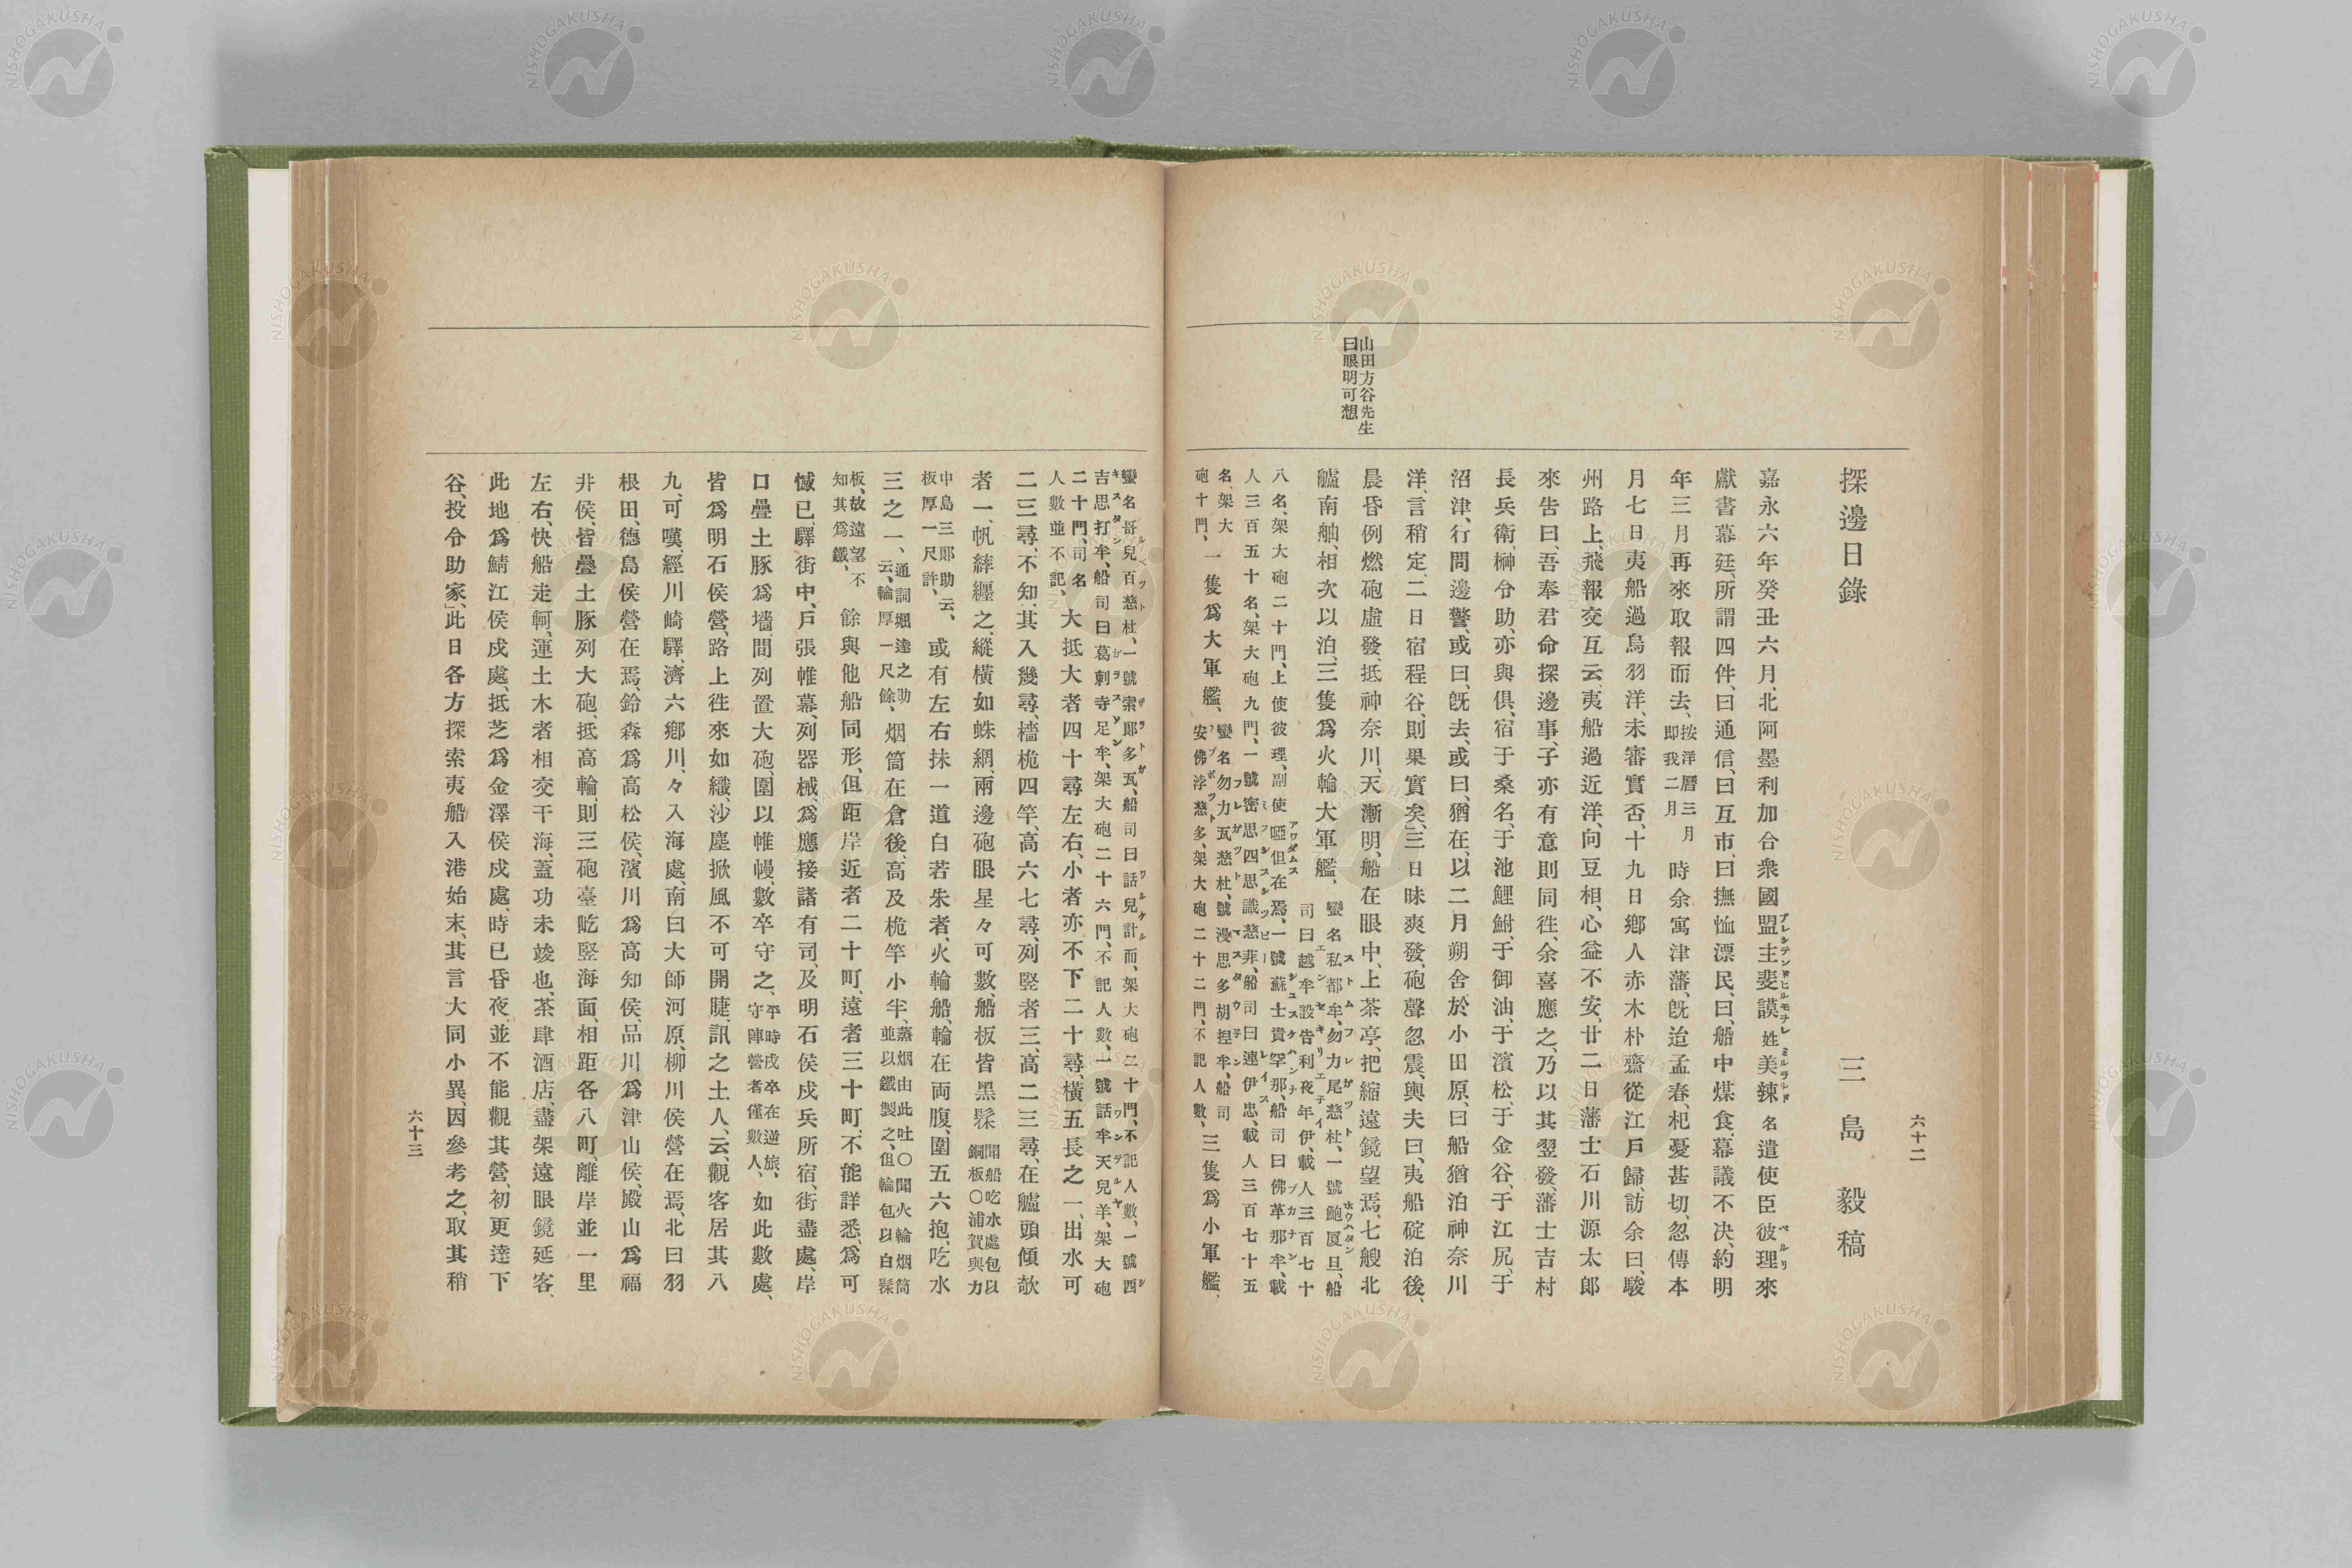 六十二
山田方谷先生
曰眼明可想
探邊日錄
三島毅稿
嘉永六年癸丑六月、北阿墨利加合衆國盟主斐謨姓美辣名遣使臣彼理來
獻書幕廷、所謂四件、曰通信、曰互市、曰撫恤漂民、曰船中煤食、幕議不決、約明
年三月再來取報而去、按洋曆三月即我二月時余寓津藩、旣迨孟春、杞憂甚切、忽傳本
月七日夷船過烏羽洋、未審實否、十九日鄉人赤木朴齋從江戶歸、訪余曰、駿
州路上、飛報交互云、夷船過近洋、向豆相、心益不安、廿二日藩士石川源太郞
來告曰、吾奉君命探邊事、子亦有意則同徃、余喜應之、乃以其翌發、藩士吉村
長兵衛、榊令助、亦與俱、宿于桑名、于池鯉鮒、于御油、于濱松、于金谷、于江尻、于
沼津、行問邊警、或曰、旣去、或曰、猶在、以二月朔舍於小田原、曰船猶泊神奈川
洋、言稍定、二日宿程谷、則果實矣、」三日昧爽發、砲聲忽震、輿夫曰、夷船碇泊後、
晨昏例燃砲虛發、抵神奈川、天漸明、船在眼中、上茶亭、把縮遠鏡望焉、七艘北
艫南舳、相次以泊、三隻爲火輪大軍艦、蠻名私都牟、勿力尾慈杜、一號鮑厦旦、船
司曰越牟設告利夜年伊、載人三百七十
八名、架大砲二十門、上使彼理、副使啞但在焉、一號蘇士貴罕那、船司曰佛革那牟、載
人三百五十名、架大砲九門、一號密思四思識慈菲、船司曰連伊忠、載人三百七十五
名、架大
砲十門、一隻爲大軍艦、蠻名勿力瓦慈杜、號漫思多胡揑牟、船司
安佛浡慈多、架大砲二十二門、不記人數、三隻爲小軍艦、
蠻名哥兒百慈杜、一號索耶多瓦、船司曰話兒計而、架大砲二十門、不記人數、一號西
吉思打牟、船司曰葛剌寺足牟、架大砲二十六門、不記人數、一號話牟天兒羊、架大砲
二十門、司名
人數並不記、大抵大者四十尋左右、小者亦不下二十尋、橫五長之一、出水可
二三尋、不知其入幾尋、檣桅四竿、高六七尋、列竪者三、高二三尋、在艫頭傾欹
者一、帆縴纒之、縱橫如蛛網、兩邊砲眼星々可數、船板皆黑髹聞船吃水處包以銅板〇浦賀與力
中島三郞助云、
板厚一尺許、或有左右抹一道白若朱者、火輪船、輪在両腹、圍五六抱、吃水
三之一、通詞堀達之助云、輪厚一尺餘、烟筒在倉後、高及桅竿小半、蒸烟由此吐〇聞火輪烟筒並以鐵製之、但輪包以白髹
板、故遠望不
知其爲鐵、餘與他船同形、但距岸近者二十町、遠者三十町、不能詳悉、爲可
憾已、驛街中、戶張帷幕、列器械、爲應接諸有司、及明石侯戍兵所宿、街盡處、岸
口疊土豚爲墻、間列置大砲、圍以帷幔、數卒守之、平時戍卒在逆旅、守陣營者僅數人、如此數處、
皆爲明石侯營、路上徃來如織、沙塵掀風不可開睫、訊之土人、云、觀客居其八
九、可嘆、經川崎驛、濟六鄕川、々入海處、南曰大師河原、柳川侯營在焉、北曰羽
根田、德島侯營在焉、鈴森爲高松侯、濱川爲高知侯、品川爲津山侯、殿山爲福
井侯、皆疊土豚列大砲、抵高輪、則三砲臺屹竪海面、相距各八町、離岸並一里
左右、快船走軻、運土木者相交干海、蓋功未竣也、茶肆酒店、盡架遠眼鏡延客、
此地爲鯖江侯戍處、抵芝爲金澤侯戍處、時已昏夜、並不能觀其營、初更達下
谷、投令助家」、此日各方探索夷船入港始末、其言大同小異、因參考之、取其稍
六十三